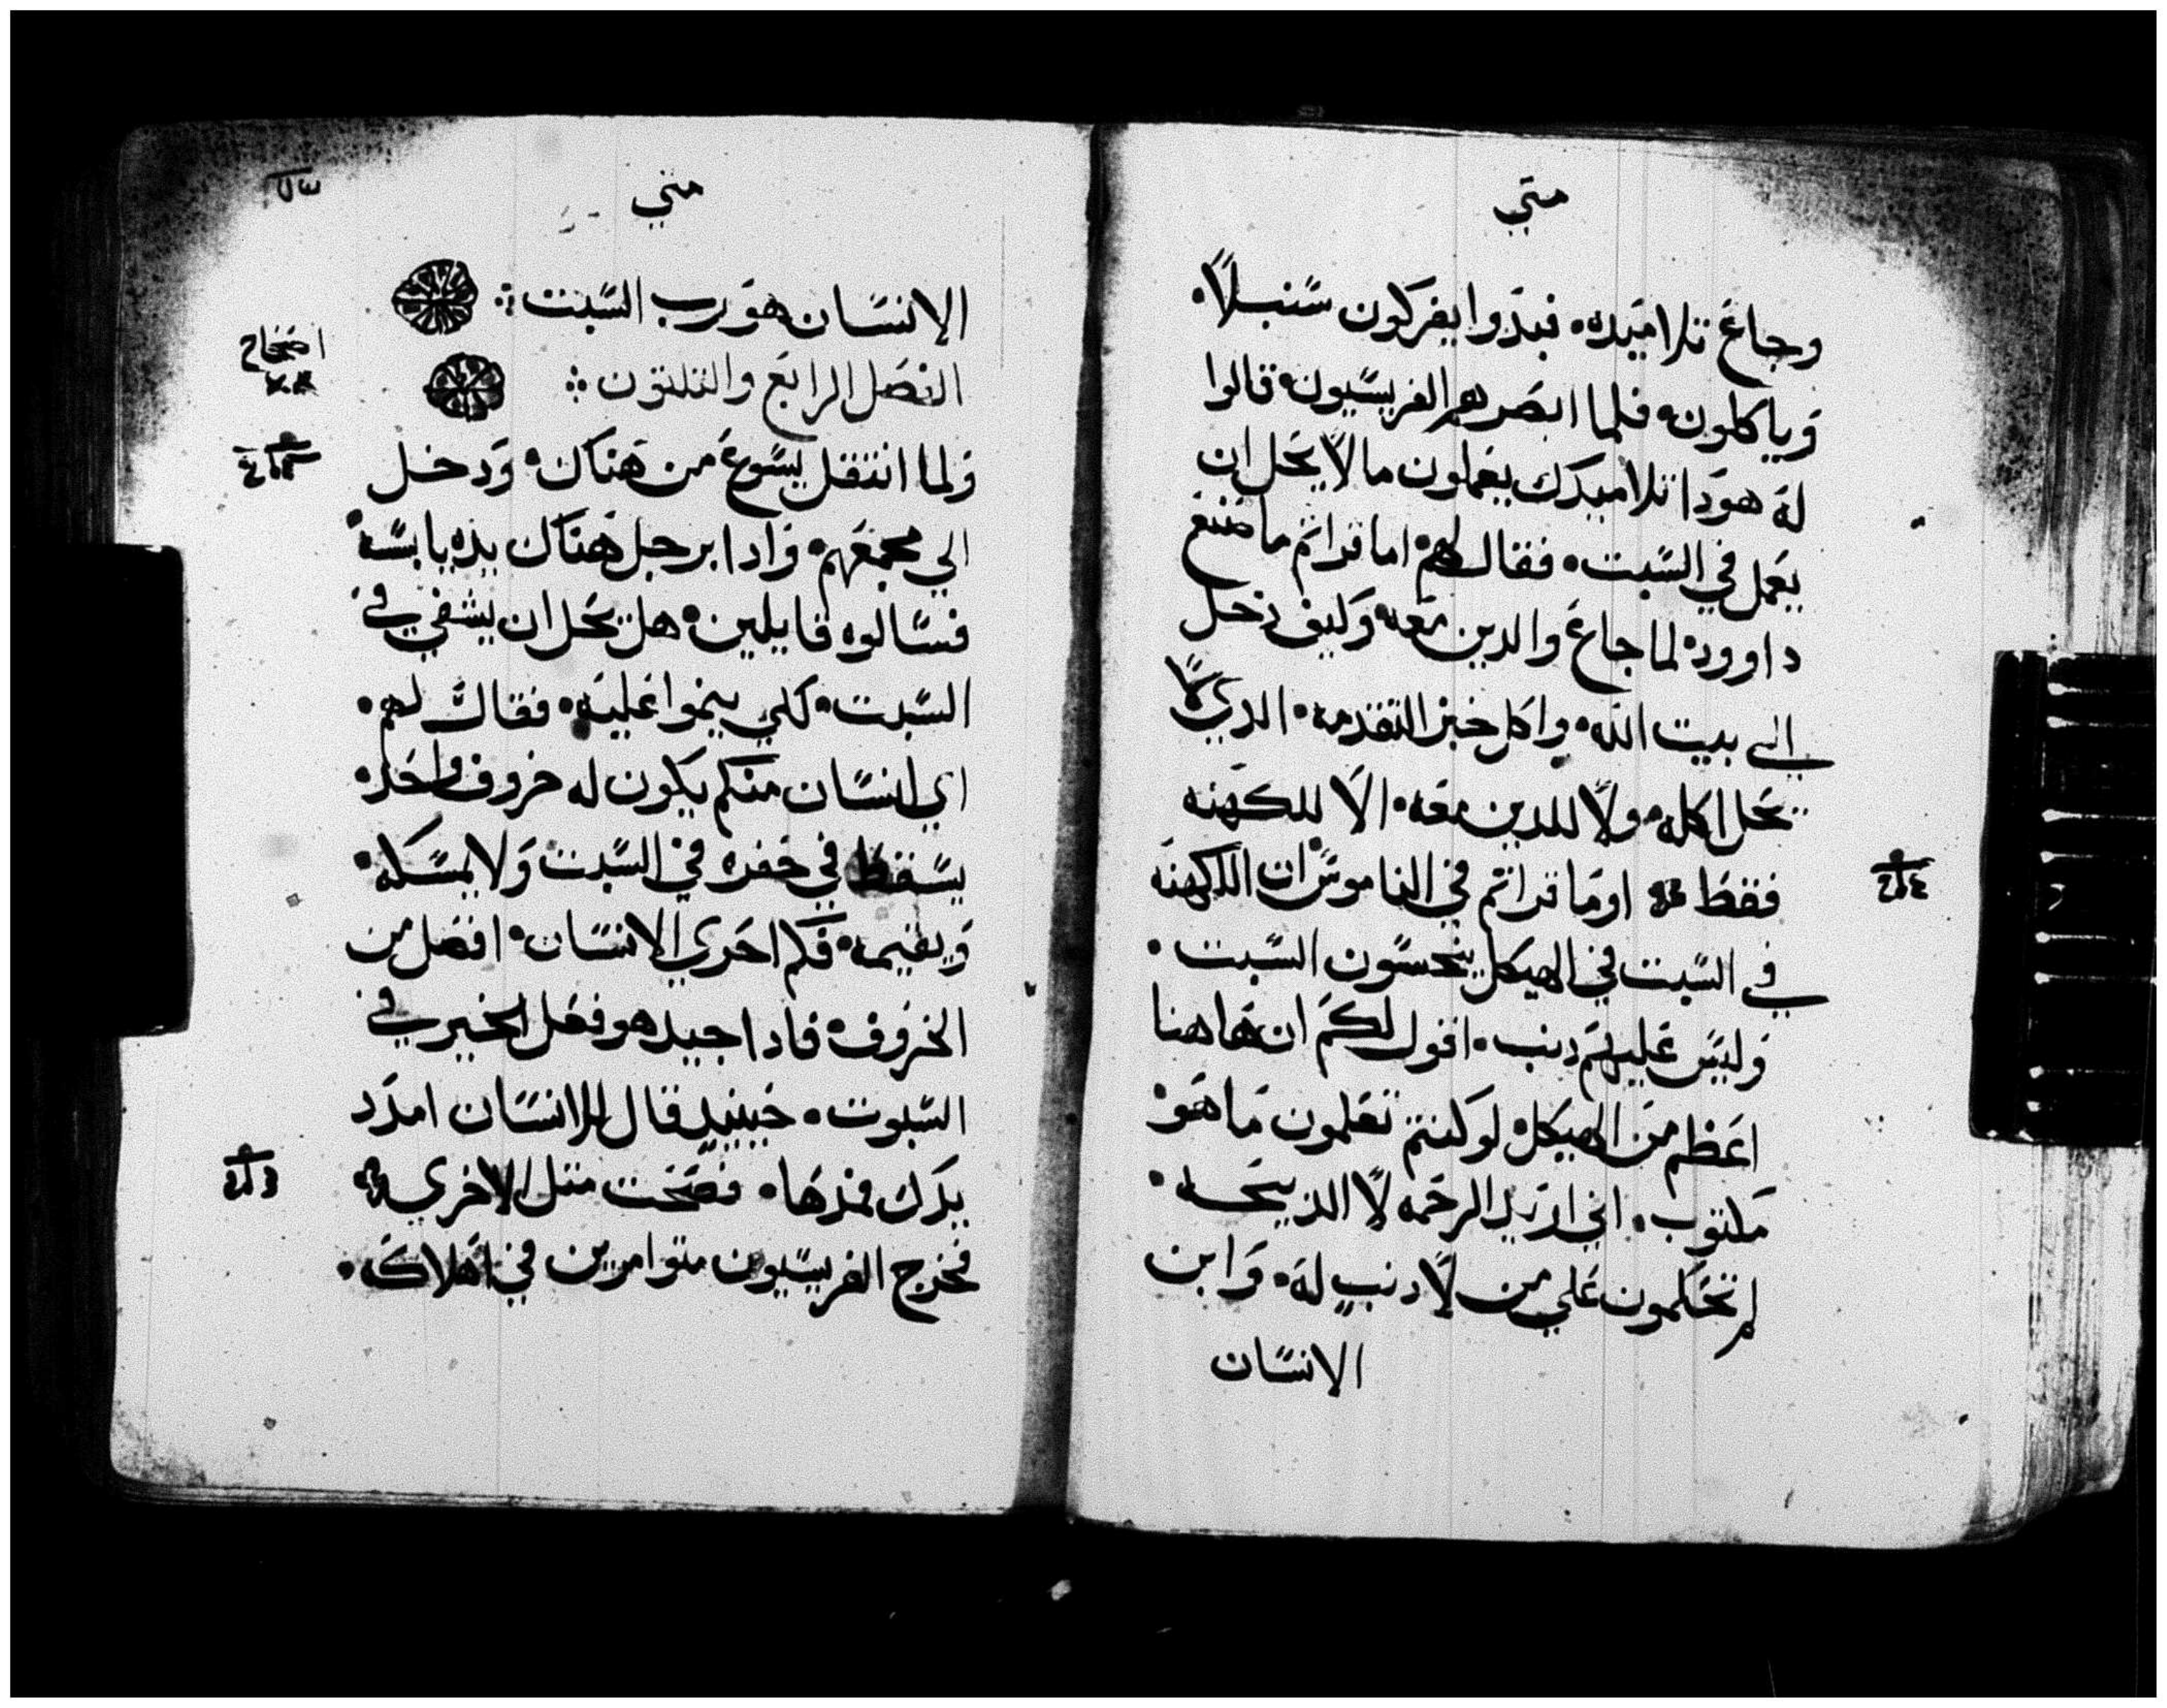 متي
وجاع تلاميده. فبدوا يفركون سنبلاً.
وياكلون. فلما ابصرهم الفريسيون قالوا
له هودا تلاميدك يعملون ما لا يحل ان
يعمل في السبت. فقال لهم. اما قراتم ما صنع
داوود. لما جاع والدين معه. وكيف دخل
الي بيت الله. واكل خبز التقدمه. الدي لا
يحل اكله. ولا للدين معه. الا للكهنه
فقط اوما قراتم في الناموس ان الكهنه
في السبت في الهيكل ينجسون السبت.
وليس عليهم دنب. اقول لكم ان هاهنا
اعظم من الهيكل. لو كنتم تعلمون ما هو
مكتوب. اني اريد الرحمه لا الدبيحه.
لم تحكمون علي من لا دنب له. وابن
الانسان
متي
الانسان هو رب السبت ؞
الفصل الرابع والتلتون ؞
اصحاح
ولما انتقل يسوع من هناك. ودخل
الي مجمعهم. وادا برجل هناك يده يابسه.
فسالوه قايلين. هل يحل ان يشفي في
السبت. لكي ينموا عليه. فقال لهم.
اي انسان منكم يكون له خروف واحد.
يسقط في حفره في السبت ولا يمسكه.
ويقيمه. فكم احري الانسان. افضل من
الخروف. فادا جيد هو فعل الخير في
السبوت. حينيد قال للانسان امدد
يدك فمدها. فصحت متل الاخري
فخرج الفريسيون متوامرين في اهلاكه.